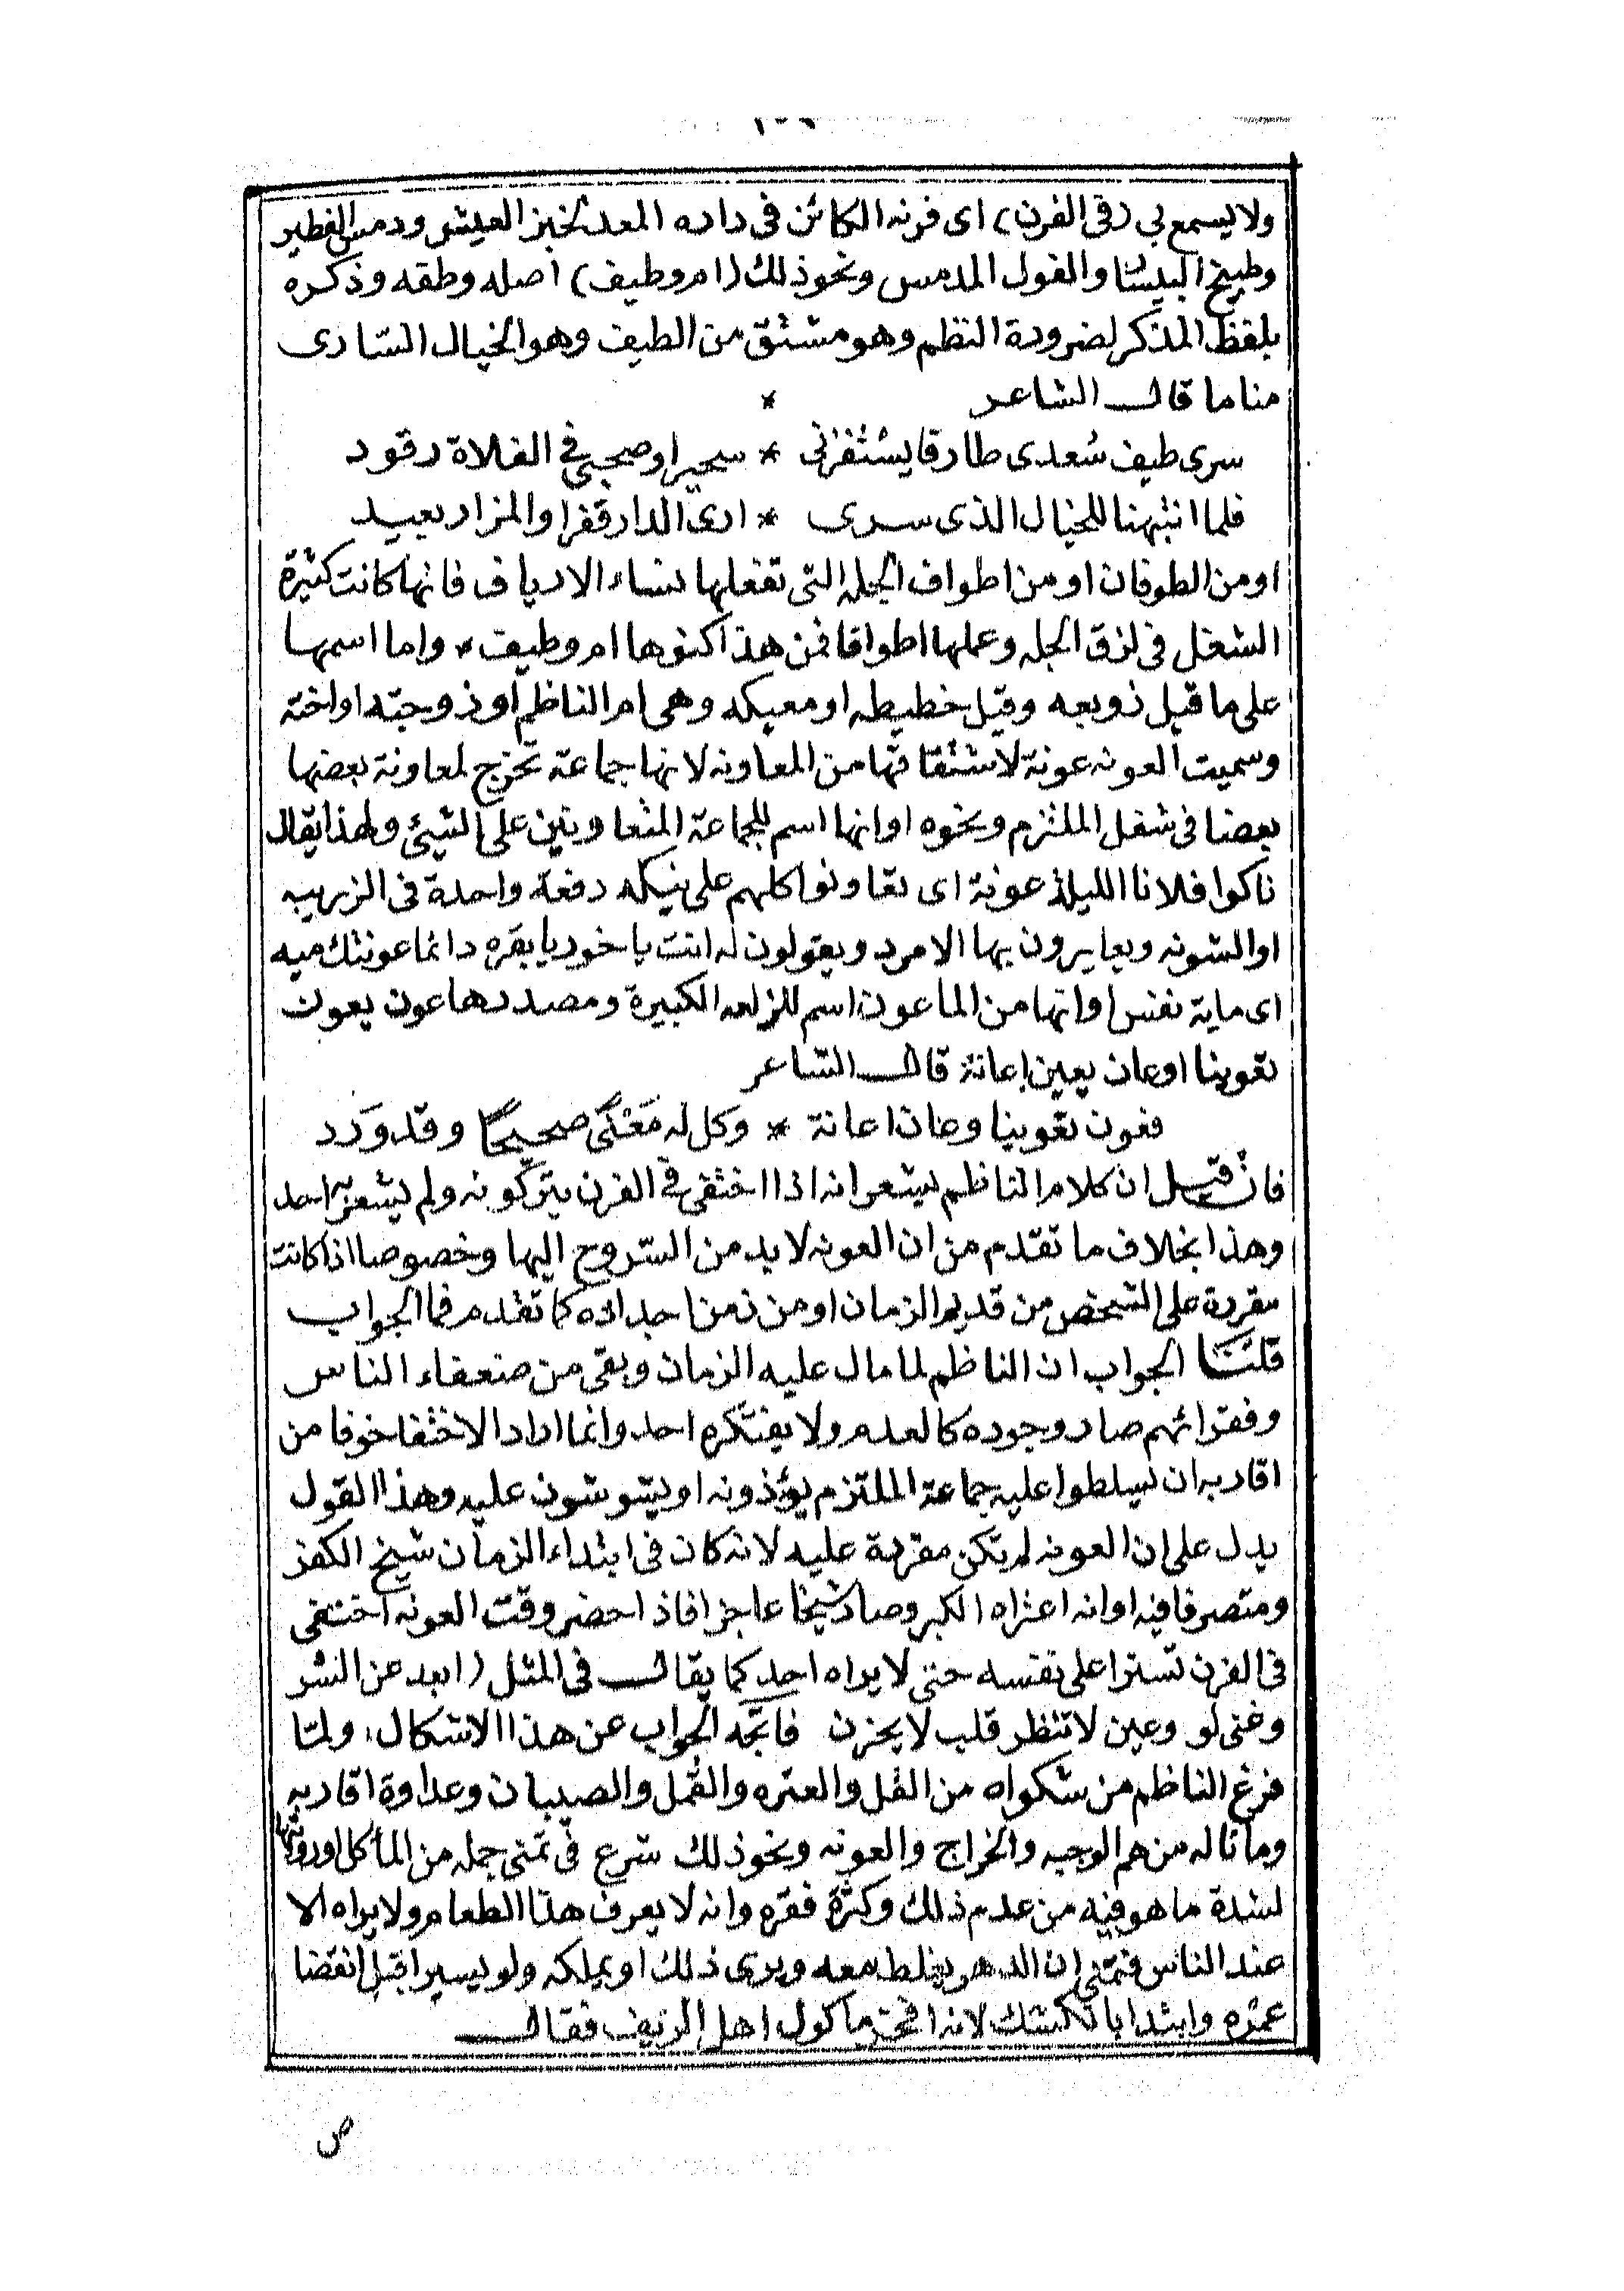 ١٠٩
ولا يسمع بى (فى الفرن) اى فرنه الكائن فى داره المعد لخبز العيش ودمس الفطير
وطبيخ البيسار والفول المدمس ونحو ذلك (ام وطيف) اصله وطفه وذكره
بلفظ المذكر لضرورة النظم وهو مشتق من الطيف وهو الخيال السّارى
مناما قال الشاعر *
سرى طيف سُعدى طارقا يستفزنى * سحيرا وصحبى فى الفلاة رقود
فلما انتبهنا للخيال الذى سرى * ارى الدار قفرا والمزار بعيد
او من الطوفان او من اطواف الجله التى تفعلها نساء الارياف فانها كانت كثيرة
الشغل فى لزق الجله وعملها اطوافا فمن هذا كنوها ام وطيف * واما اسمها
على ما قيل زوبعه وقيل خطيطه او معيكه وهى ام الناظم او زوجته او اخته
وسميت العونه عونة لاشتقاقها من المعاونه لانها جماعة تخرج لمعاونة بعضها
بعضا فى شغل الملتزم ونحوه او انها اسم للجماعة المتعاونين على الشيئ ولهذا يقال
ناكوا فلانا الليلة عونة اى تعاونوا كلهم على نيكه دفعة واحدة فى الزريبه
او الشونه ويعايرون بها الامرد ويقولون له انت ياخود يا بقره دائما عونتك ميه
اى ماية نفس او انها من الماعون اسم للزلعه الكبيرة ومصدرها عون يعون
تعوينا او عان يعين إعانة قال الشاعر
فعون تعوينا وعان اعانة * وكل له مَعْنًى صحيحًا وقد وَرَد
فان قيل ان كلام الناظم يشعر انه اذا اختفى فى الفرن يتركونه ولم يشعر به احد
وهذا بخلاف ما تقدم من ان العونه لا بد من السّروح اليها وخصوصا اذا كانت
مقررة على الشخص من قديم الزمان او من زمن اجداده كما تقدم فما الجواب
قلنا الجواب ان الناظم لما مال عليه الزمان وبقى من ضعفاء الناس
وفقرائهم صار وجوده كالعدم ولا يفتكره احد وانما اراد الاختفا خوفا من
اقاربه ان يسلطوا عليه جماعة الملتزم يؤذونه او يشوشون عليه وهذا القول
يدل على ان العونه لم تكن مقررة عليه لانه كان فى ابتداء الزمان شيخ الكفر
ومتصرفا فيه او انه اعتراه الكبر وصار شيخا عاجزا فاذا حضر وقت العونه اختفى
فى الفرن تسترا على نفسه حتى لا يراه احد كما يقال فى المثل (ابعد عن الشر
وغنى لو وعين لا تنظر قلب لا يحزن فاتجه الجواب عن هذا الاشكال، ولمّا
فرغ الناظم من شكواه من القل والعتره والقمل والصيبان وعداوة اقاربه
وما ناله من هم الوجبه والخراج والعونه ونحو ذلك شرع فى تمنى جمله من المأكل او رؤيتها
لشدة ما هو فيه من عدم ذلك وكثرة فقره وانه لا يعرف هذا الطعام ولا يراه الا
عند الناس فتمنى ان الدهر يغلط معه ويرى ذلك او يملكه ولو يسيرا قبل انقضا
عمره وابتدا بالكشك لانه افخر ماكول اهل الريف فقال
ص